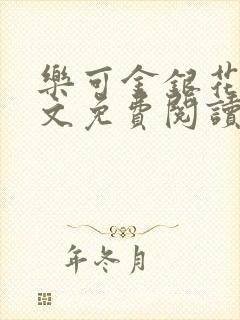 樂可金銀花
文免費閱讀
年冬月